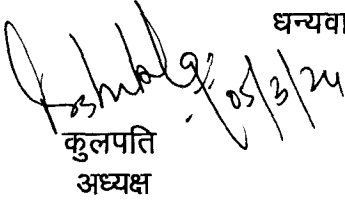 धन्यवा
05/3/24
कुलपति
अध्यक्ष